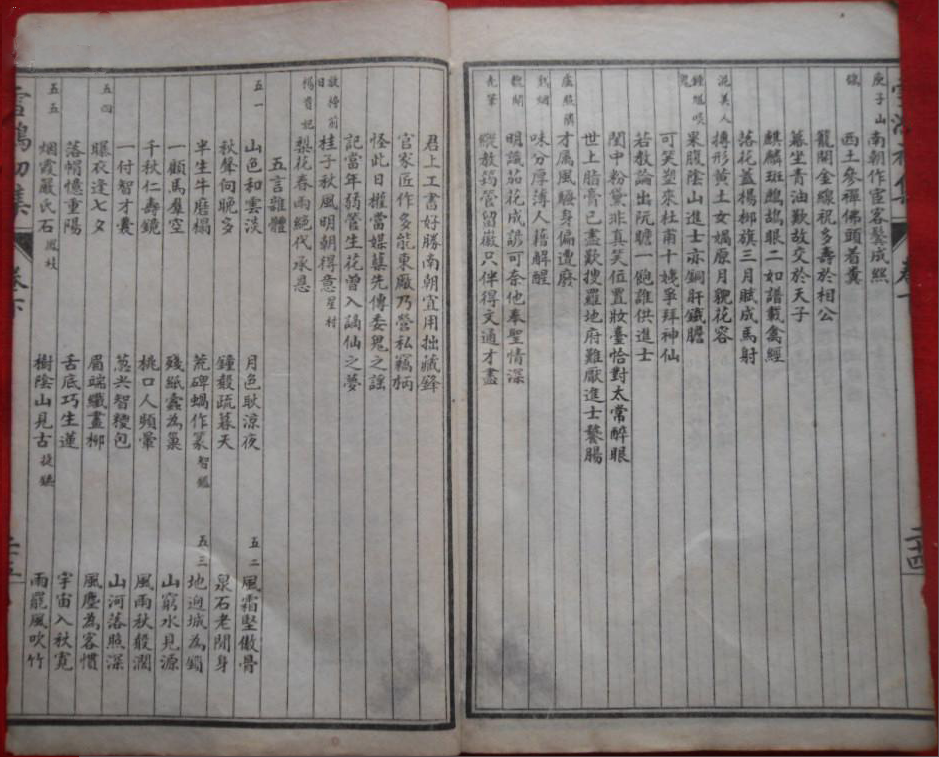 庾子山 南朝作宦客鬢成絲
線 西土參禪佛頭着糞
籠開金線祝多壽於相公
幕坐青油歎故交於天子
麒麟斑鷓鴣眼二如譜載禽經
落花蓋楊柳旗三月賦成馬射
泥美人 摶形黃土女媧原月貌花容
鍾馗啖鬼 果腹陰山進士亦銅肝鐵膽
可笑塑來杜甫十姨爭拜神仙
若教論出阮瞻一飽誰供進士
閨中粉黛非真笑位置妝臺恰對太常醉眼
世上脂膏已盡歎搜羅地府難厭進士饕腸
盧照鄰 才厲風騷身偏遭癘
味分厚薄人藉解酲
明識茄花成諺可奈他奉聖情深
禿筆 縱教筠管留嶶只伴得文通才盡
二十四
君上工書好勝南朝宜用拙藏鋒
官家匠作多能東廠乃營私竊柄
怪此日權當媒蘖先傳委鬼之謠
記當年弱管生花曾入謫仙之夢
放榜前日 桂子秋風明朝得意 星村
楊貴妃 梨花春雨絕代承恩
五言雜體
五一 山色和雲淡 月色耿涼夜 五二 風霜堅傲骨
秋聲向晚多 鐘聲疏暮天 泉石老閒身
半生牛磨榻 荒碑蝸作篆 智鑑 五三 地迥城為鎖
一顧馬羣空 殘紙蠹為巢 山窮水見源
千秋仁壽鏡 桃口人頻暈 風雨秋聲濶
一付智才囊 葱尖智稜包 山河落照深
五四 曝衣逢七夕 眉端纖畫柳 風塵為客慣
落帽憶重陽 舌底巧生蓮 宇宙入秋寬
五五 烟霞嚴氏石 鳳岐 樹陰山見古 雨罷風吹竹
雪鴻初集 卷下 二十五